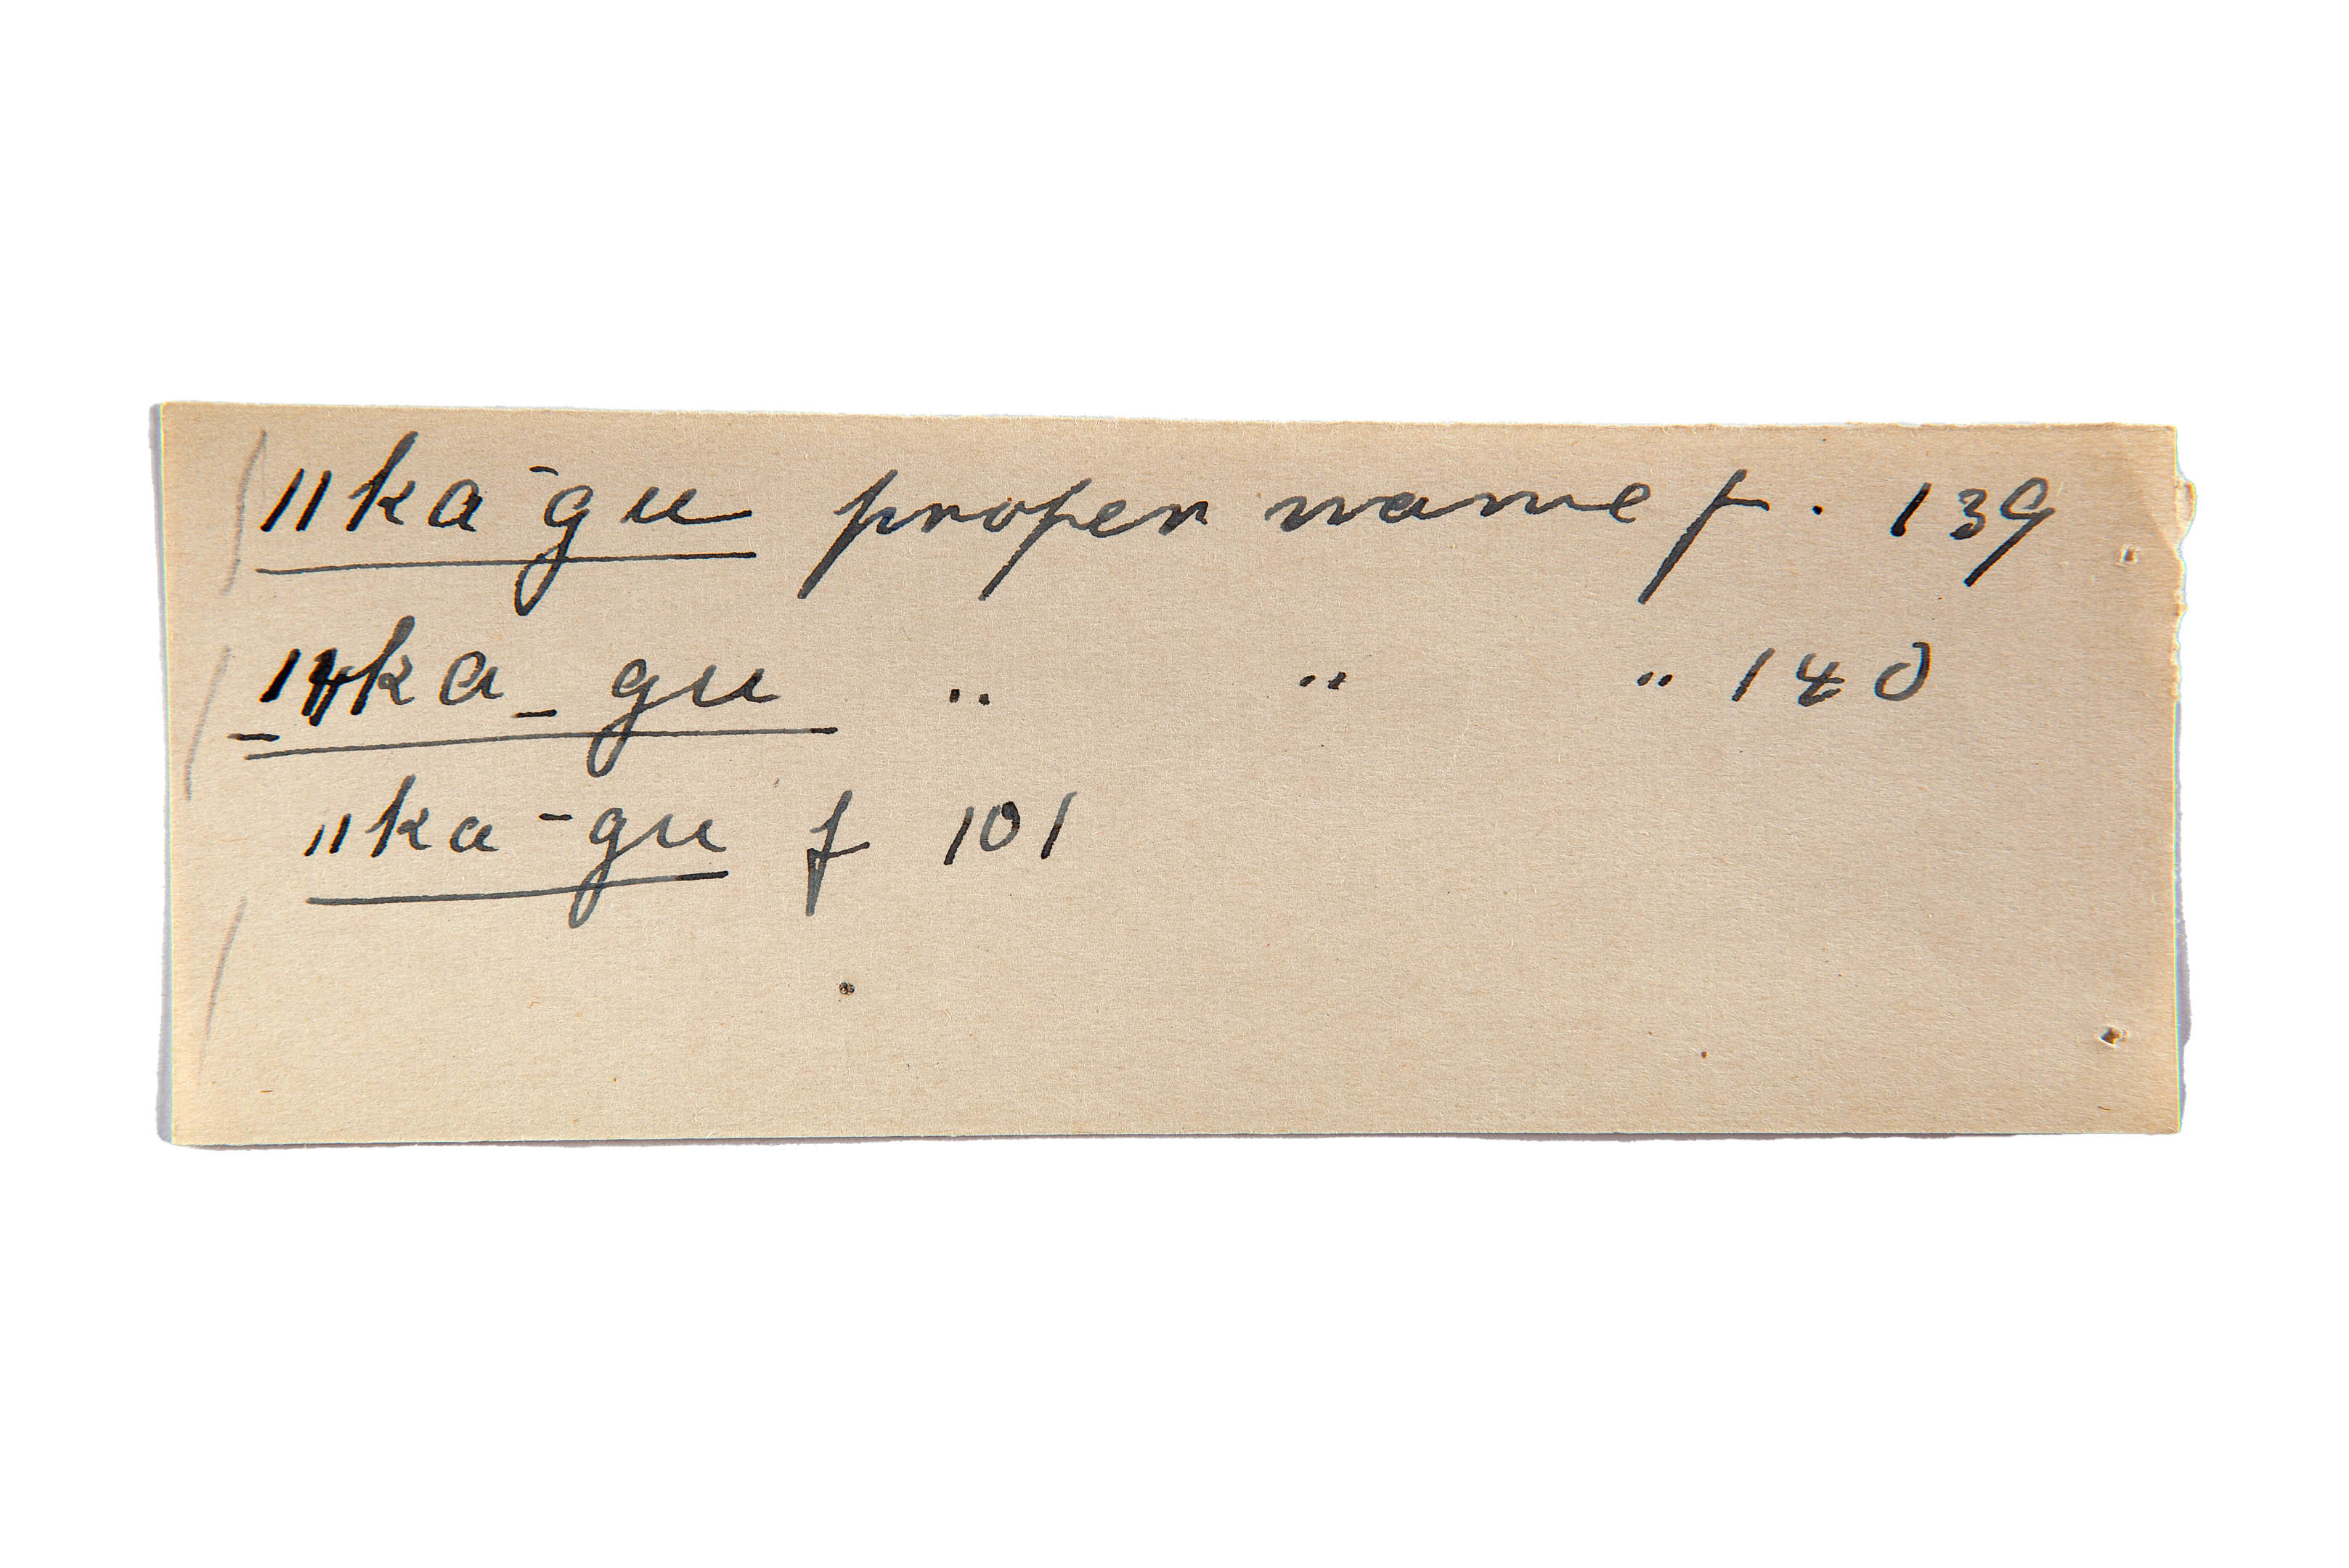 ǁka ¯gu proper name f. 139
_ǁka _ gu " " " 140
ǁka ¯gu f 101